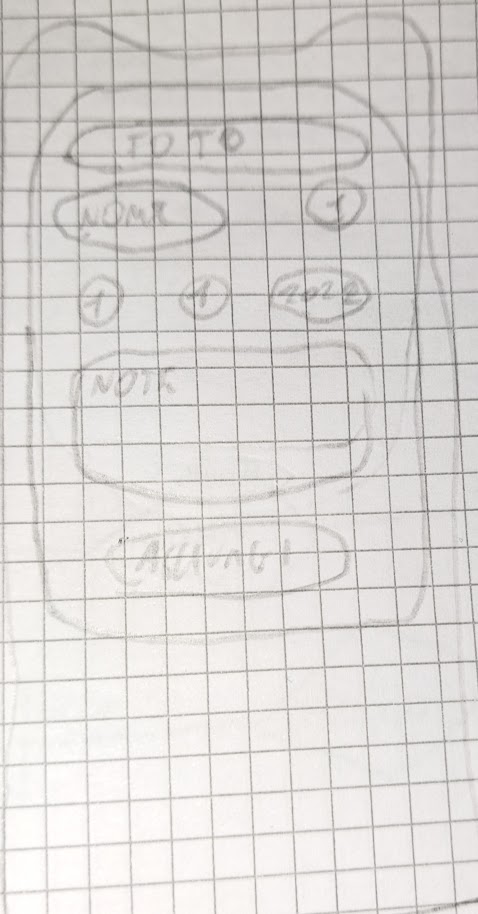 FOTO
NOME 1
1 1 2022
NOTE
AGGIUNGI